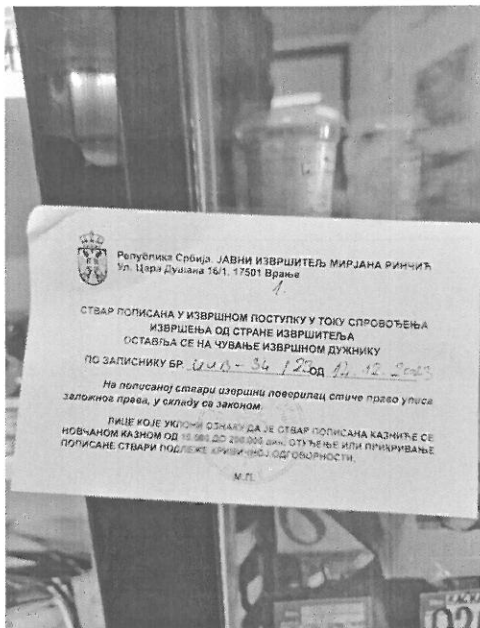 Република Србија, ЈАВНИ ИЗВРШИТЕЉ МИРЈАНА РИНЧИЋ
Ул. Цара Душана 16/1, 17501 Врање
1.
СТВАР ПОПИСАНА У ИЗВРШНОМ ПОСТУПКУ У ТОКУ СПРОВОЂЕЊА
ИЗВРШЕЊА ОД СТРАНЕ ИЗВРШИТЕЉА
ОСТАВЉА СЕ НА ЧУВАЊЕ ИЗВРШНОМ ДУЖНИКУ
ПО ЗАПИСНИКУ БР. ИИВ-34/22 ОД 14.12.2023
На пописаној ствари извршни поверилац стиче право уписа
заложног права, у складу са законом.
ЛИЦЕ КОЈЕ УКЛОНИ ОЗНАКУ ДА ЈЕ СТВАР ПОПИСАНА КАЗНИЋЕ СЕ
НОВЧАНОМ КАЗНОМ ОД 10.000 ДО 200.000 дин. ОТУЂЕЊЕ ИЛИ ПРИКРИВАЊЕ
ПОПИСАНЕ СТВАРИ ПОДЛЕЖЕ КРИВИЧНОЈ ОДГОВОРНОСТИ.
М.П.